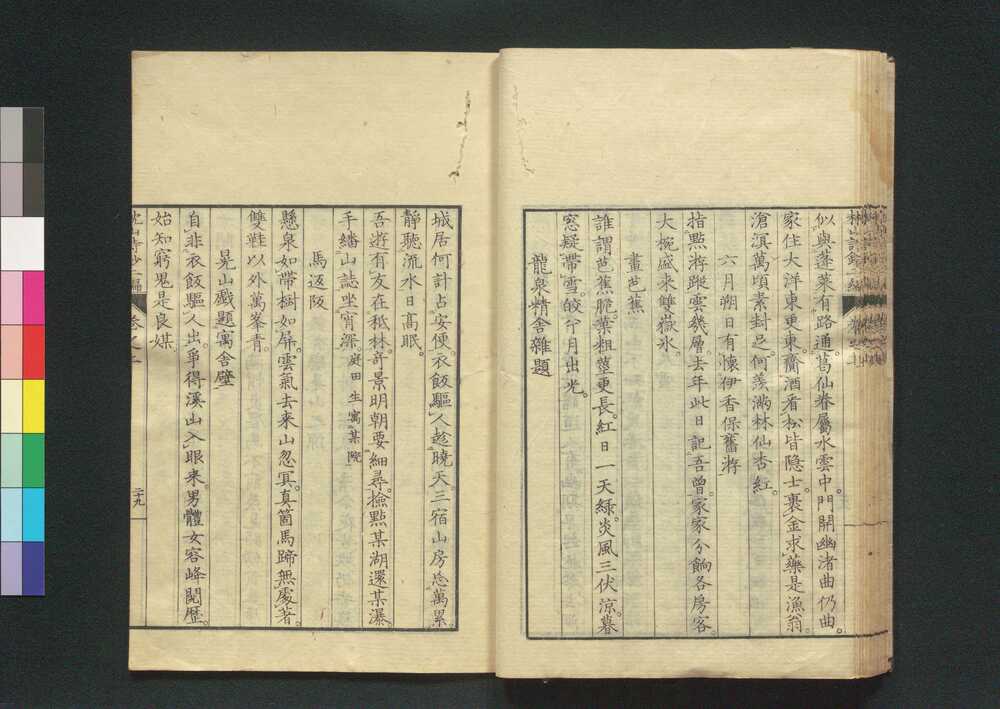 似與蓬萊有路通。葛仙眷屬水雲中。門開幽渚曲仍曲。
家住大洋東更東。賣酒看松皆隱士。裹金求藥是漁翁。
滄溟萬頃素封足。何羨滿林仙杏紅。
六月朔日有懷伊香保舊游
指點游蹤雲幾層。去年此日記吾曾。家家分餉各房客。
大椀盛來雙嶽氷。
畫芭蕉
誰謂芭蕉脆。葉粗莖更長。紅日一天綠。炎風三伏涼。暮
窓疑帶雪。皎々月出光。
龍泉精舍雜題
城居何計占安便。衣飯驅人趁曉天。三宿山房忘萬累。
靜聽流水日高眠。
吾遊有友在秪林。許景明朝要細尋。撿點某湖還某瀑。
手繙山誌坐宵深。庭田生寓某院
馬返阪
懸泉如帶樹如屏。雲氣去来山忽冥。真箇馬蹄無處著。
雙鞋以外萬峯青。
晃山戲題寓舍壁
自非衣飯驅人出。爭得溪山入眼来。男體女容峰閱歷。
始知窮鬼是良媒。
二十九